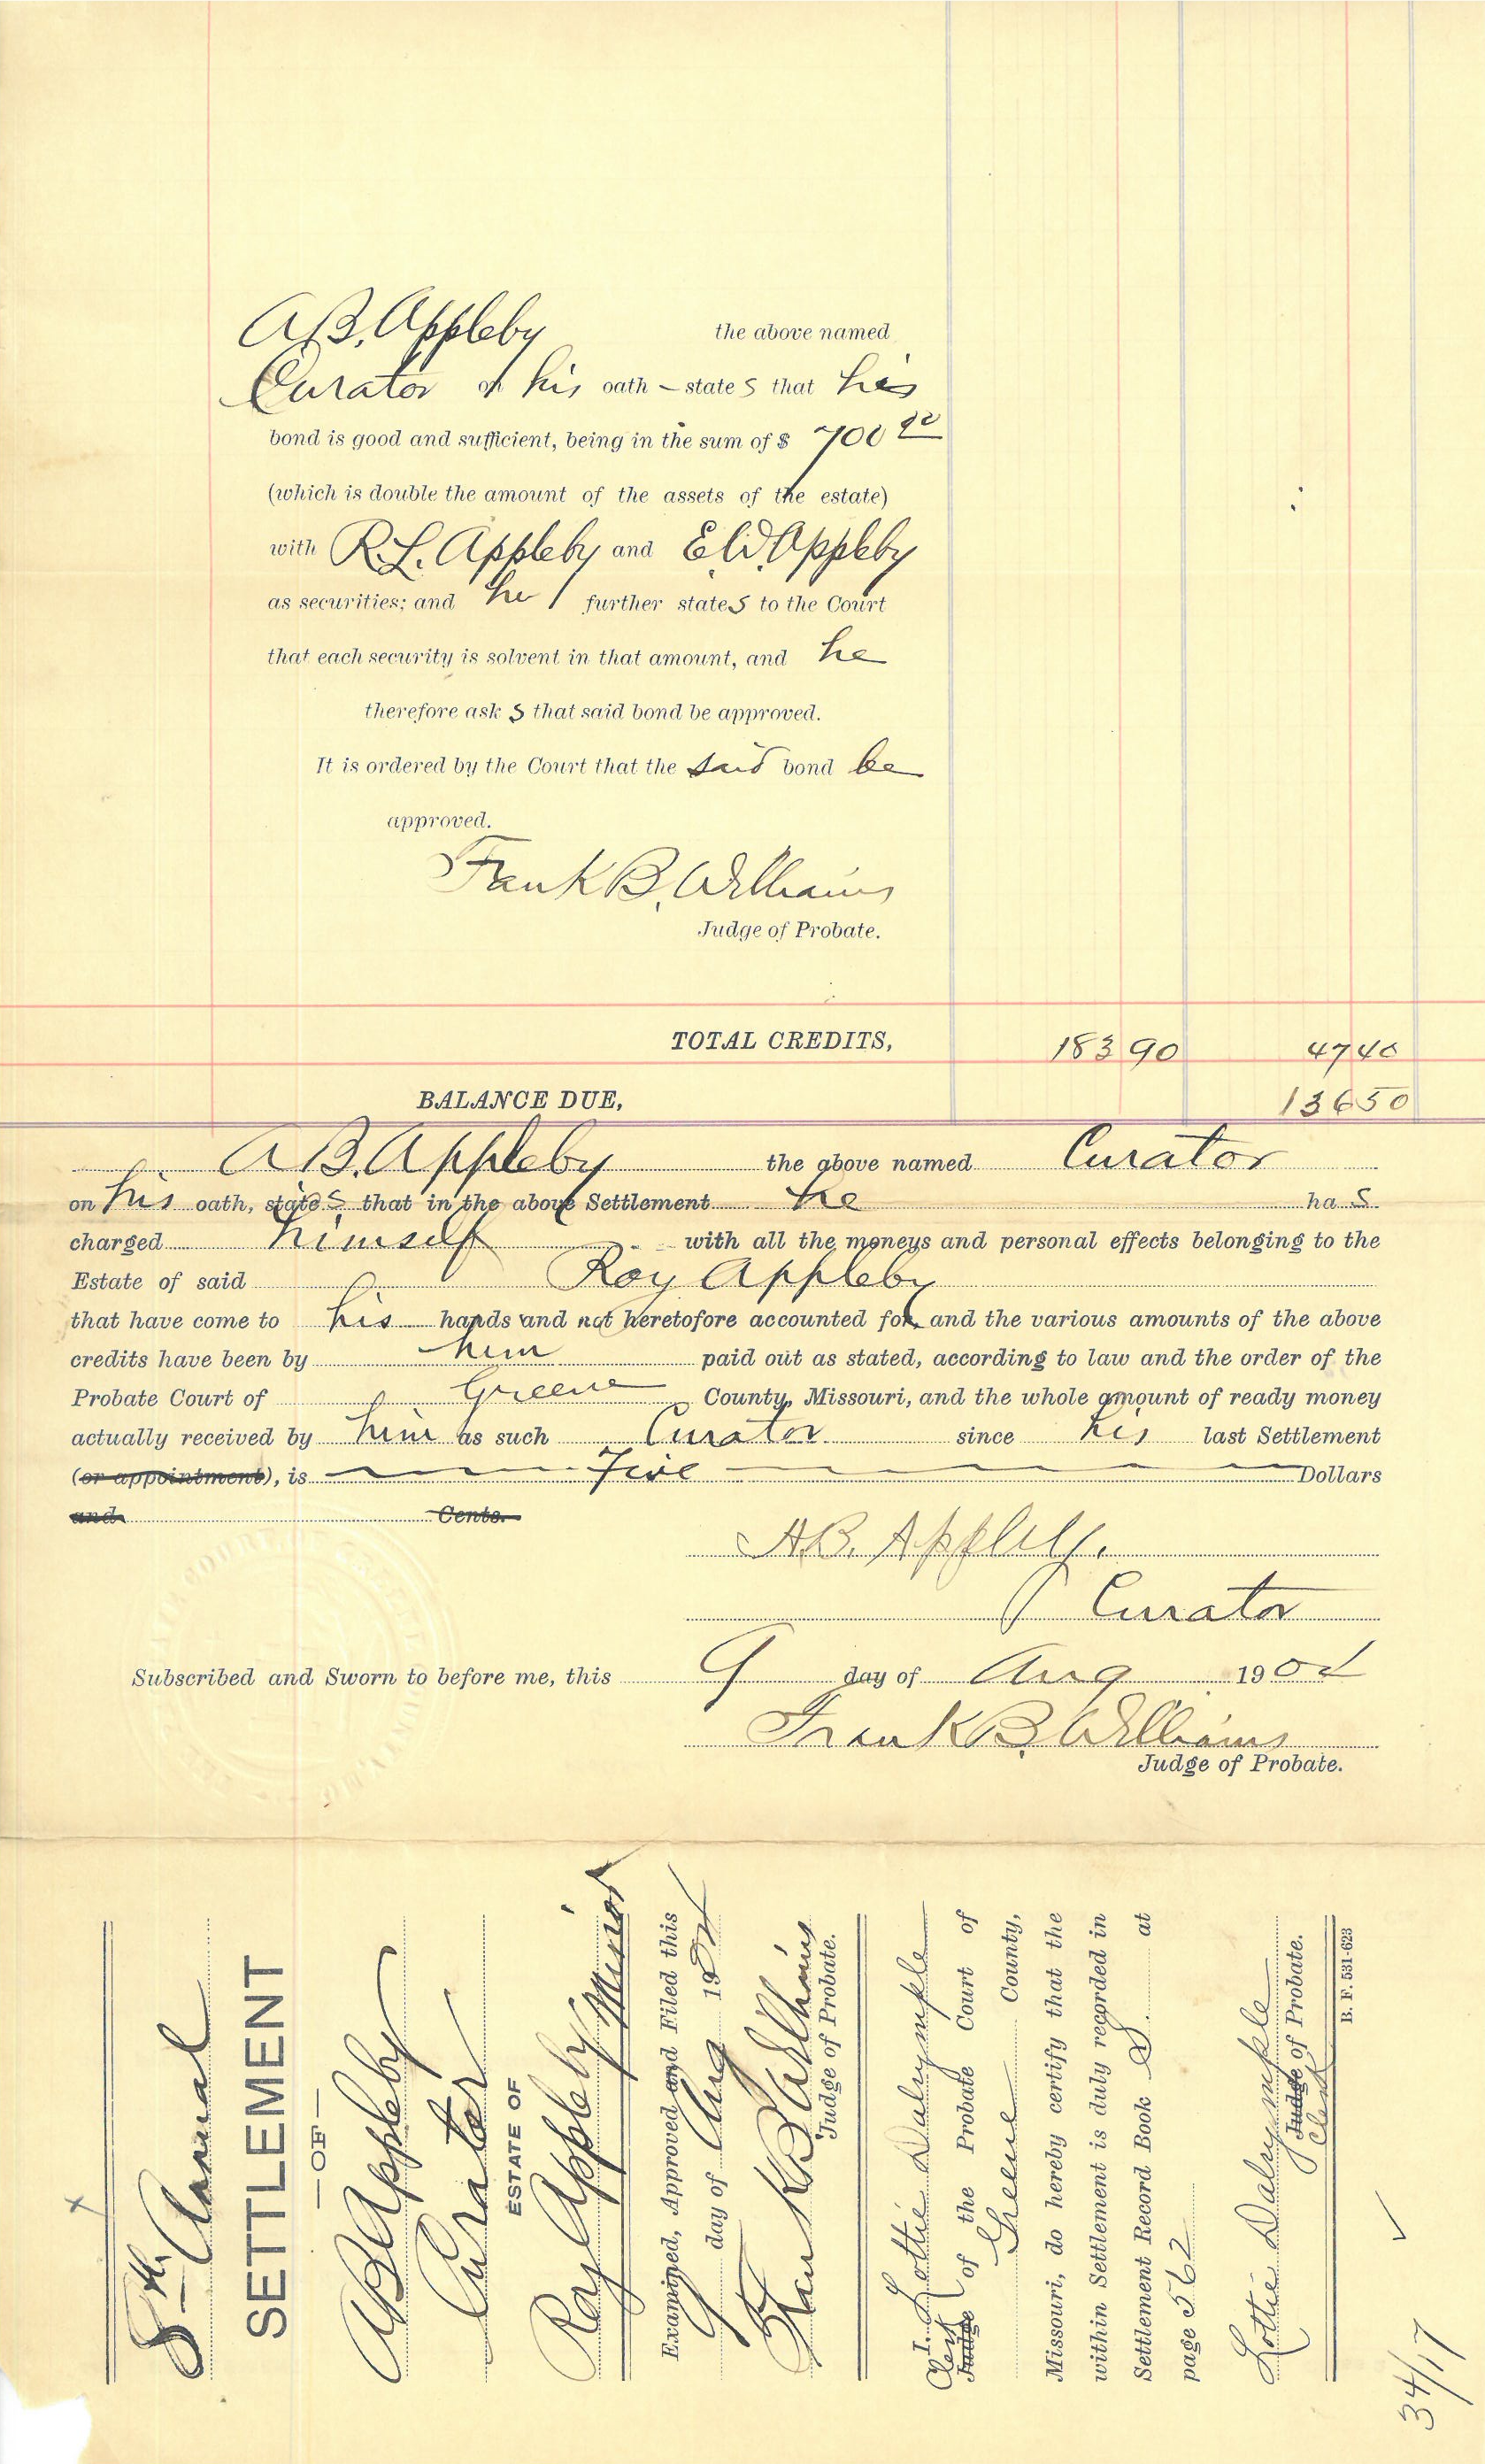 A.B. Appleby the above named
Curator on his oath – states that his
bond is good and sufficient, being in the sum of $ 700 00
(which is double the amount of the assets of the estate)
with R.L. Appleby and E.W. Appleby
as securities; and he further states to the Court
that each security is solvent in that amount, and he
therefore ask s that said bond be approved.
It is ordered by the Court that the said bond be
approved.
Frank B. Williams
Judge of Probate.
TOTAL CREDITS, 183 90 47 40
BALANCE DUE, 136 50
A B. Appleby the above named Curator
on his oath, states that in the above Settlement he ha s
charged himself with all the moneys and personal effects belonging to the
Estate of said Roy Appleby
that have come to his hands and not heretofore accounted for, and the various amounts of the above
credits have been by him paid out as stated, according to law and the order of the
Probate Court of Greene County, Missouri, and the whole amount of ready money
actually received by him as such Curator since his last Settlement
(or appointment), is Five Dollars
and Cents.
A.B. Appleby.
Curator
Subscribed and Sworn to before me, this 9 day of Aug 190
Frank B. Williams
Judge of Probate.
8th Annual
SETTLEMENT
—OF—
A B Appleby
Curator
ESTATE OF
Roy Appleby Minor
Examined, Approved and Filed this
9 day of Aug 190
Frank B Williams
Judge of Probate.
I, Lottie Dalrymple
Clerk
Judge of the Probate Court of
Greene County,
Missouri, do hereby certify that the
within Settlement is duly recorded in
Settlement Record Book S at
page 562
Lottie Dalrymple
Judge of Probate.
Clerk
B. F. 531-623
34/17